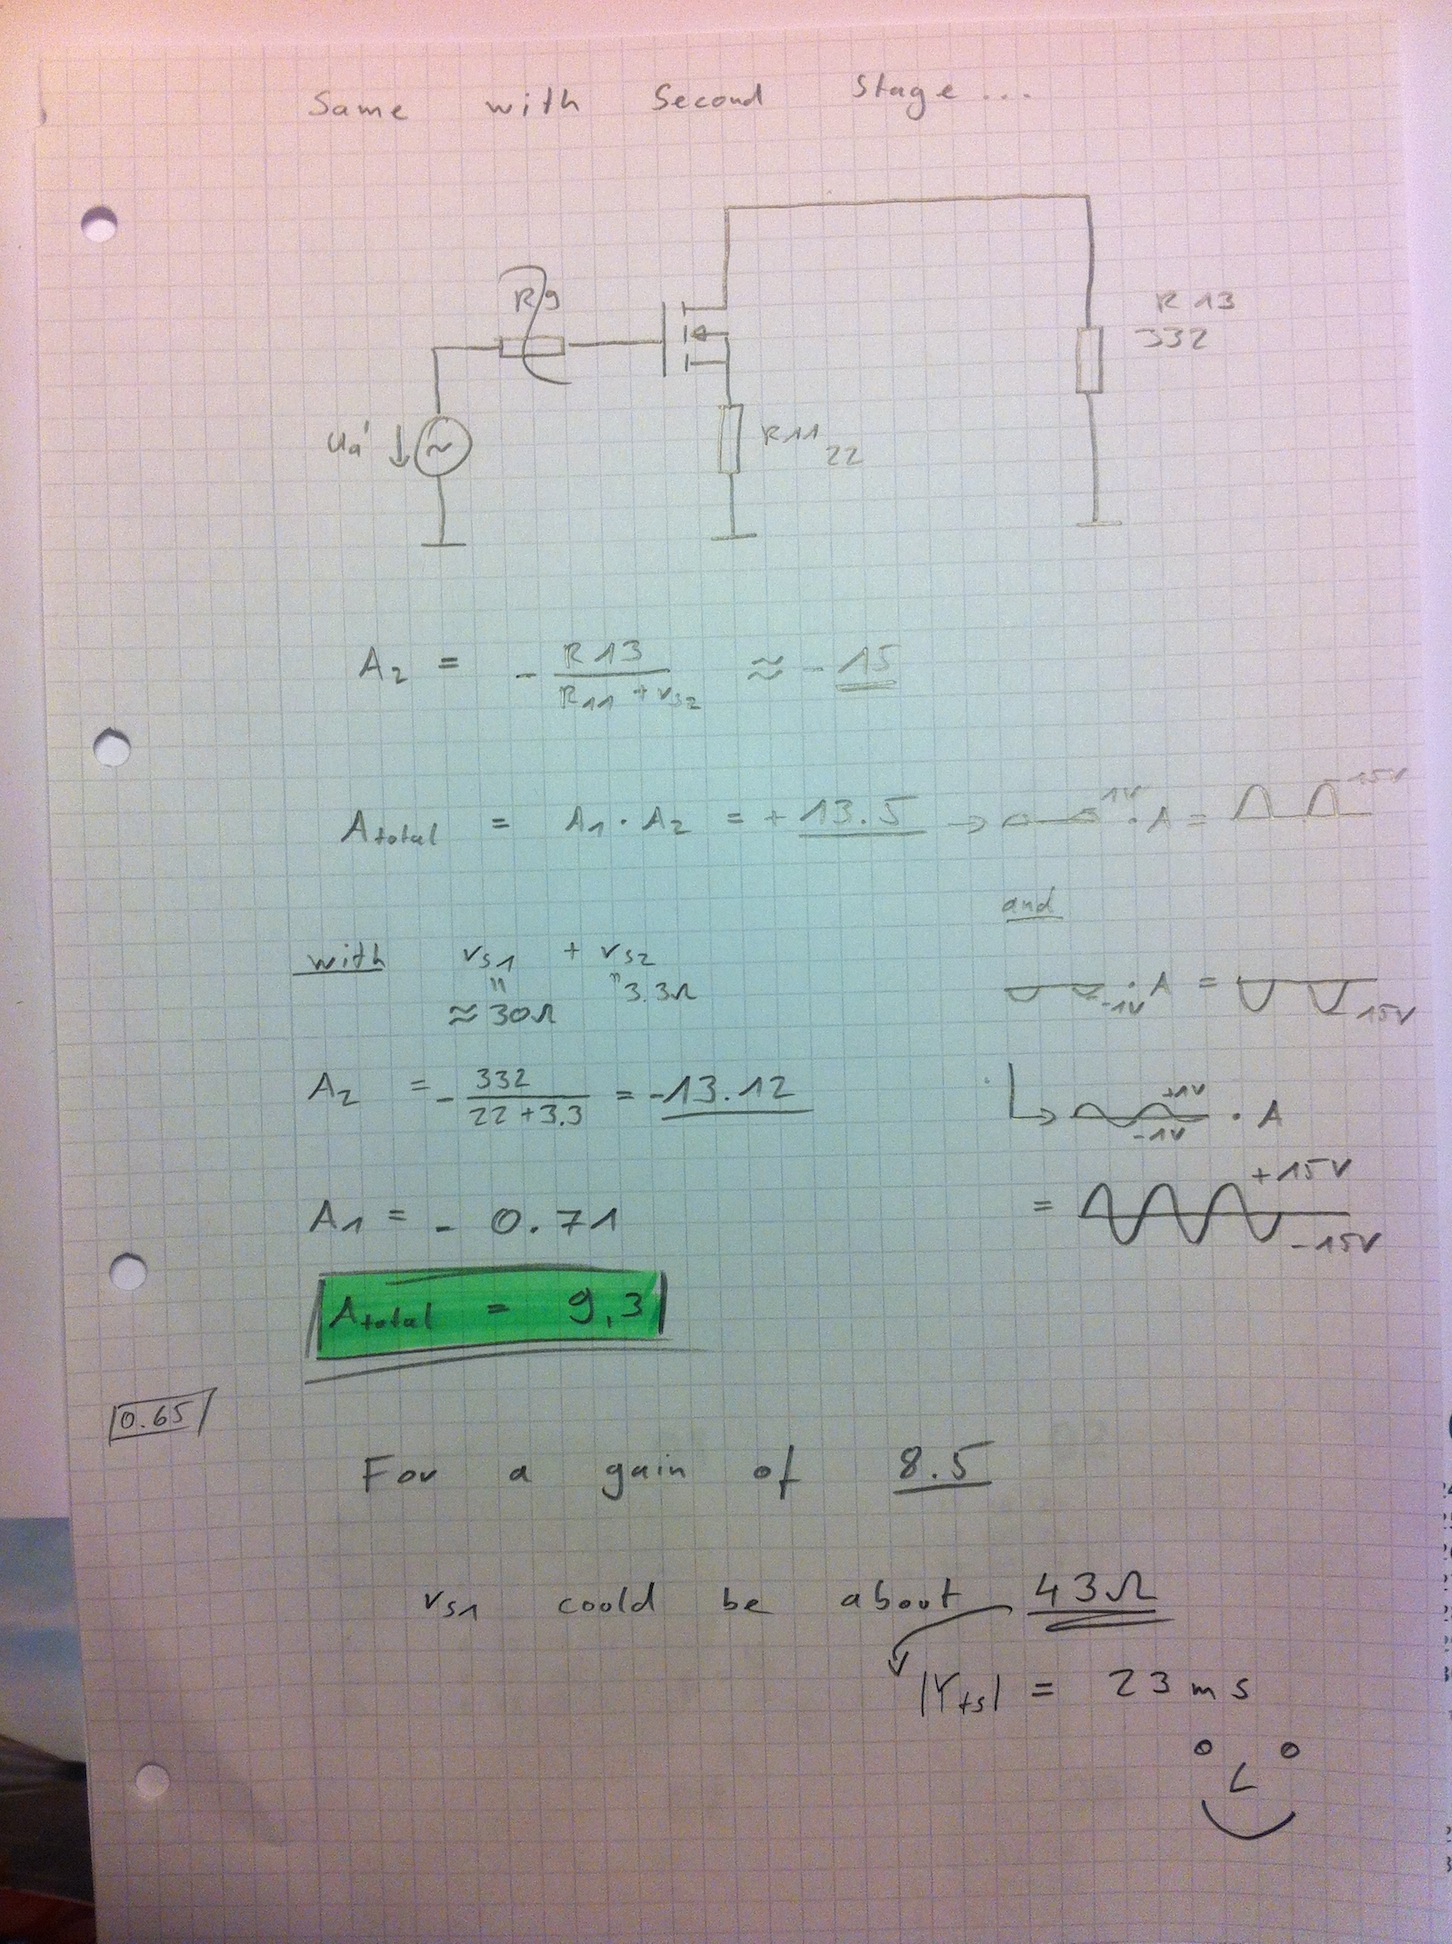 Same with Second Stage...
R9
R13
332
ua'
~
R11 22
A2 = - R13 / (R11 + rs2) ≈ - 15
Atotal = A1 · A2 = + 13.5 → 1V · A = 15V
and
-1V · A = 15V
with rs1 + rs2
" "
≈ 30Ω 3.3Ω
A2 = - 332 / (22 + 3.3) = -13.12
+1V
-1V · A
A1 = - 0.71
= +15V
-15V
Atotal = 9,3
0.65
For a gain of 8.5
rs1 could be about 43Ω
|Yfs| = 23 ms